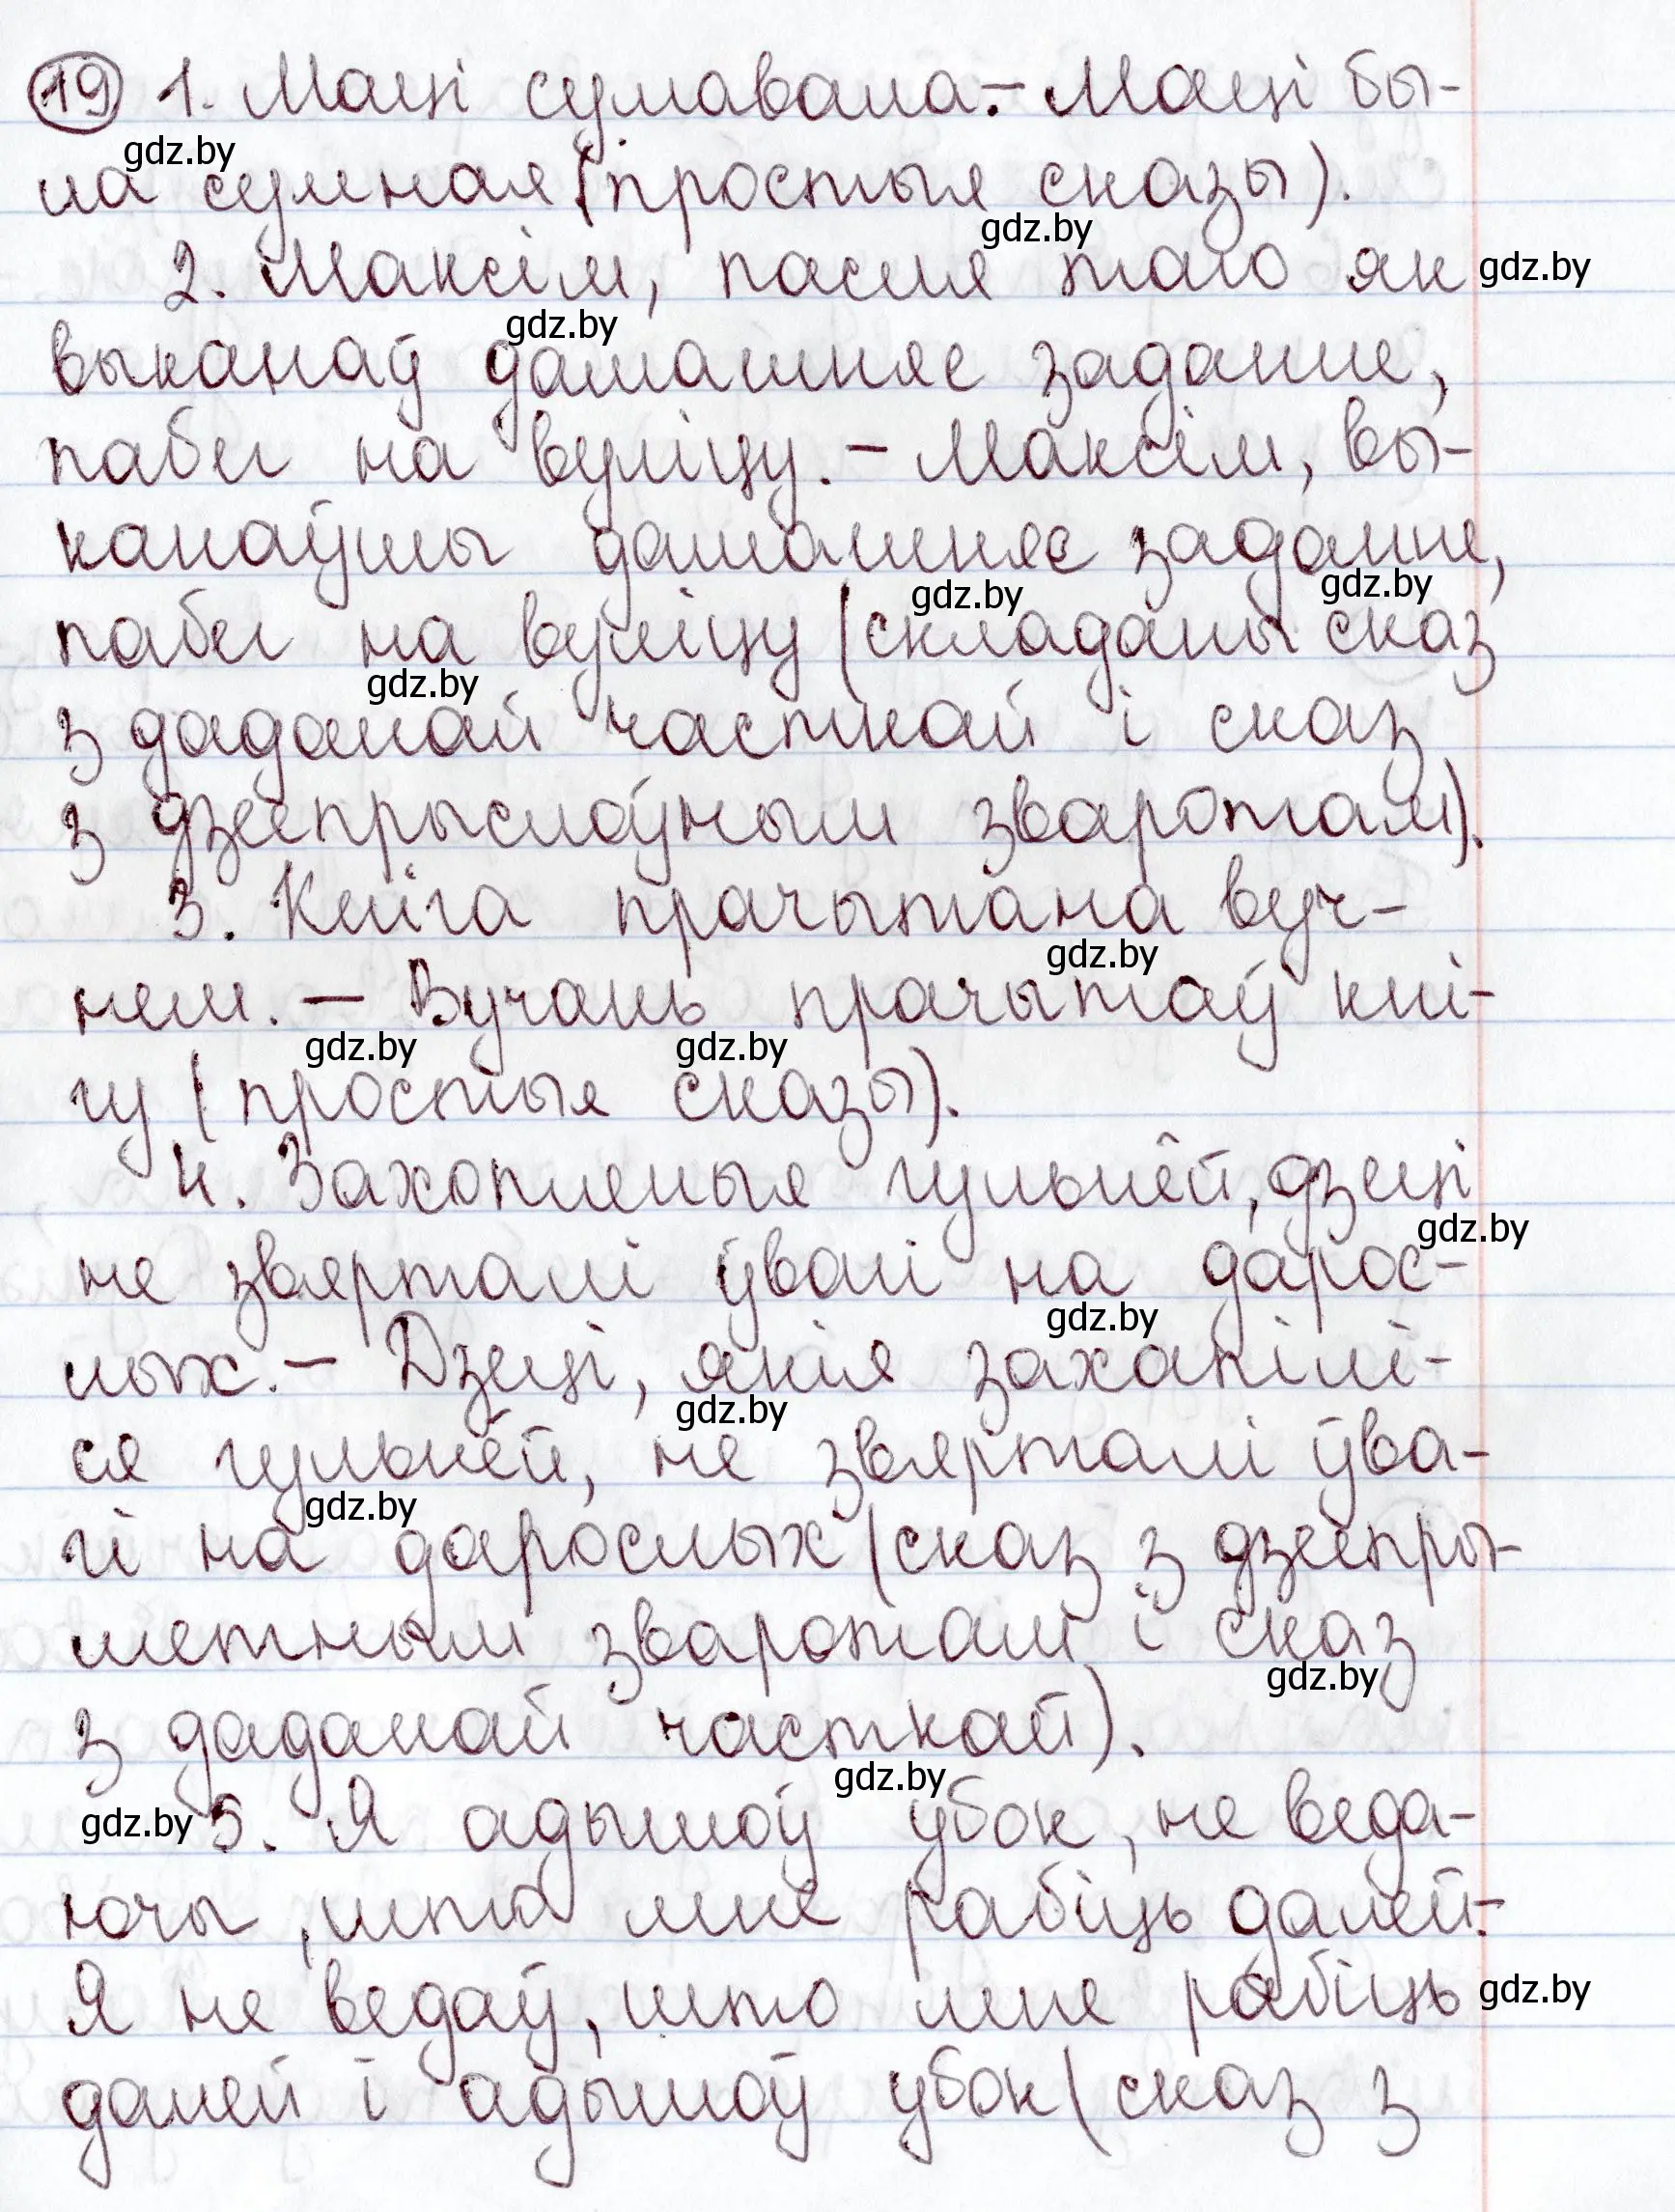 19 1. Маці сумавала. – Маці бы-
gdz.by
ла сумная (простыя сказы).
gdz.by
2. Максім, пасля таго як gdz.by
gdz.by
выканаў дамашняе заданне,
пабег на вуліцу. – Максім, вы-
канаўшы дамашняе заданне,
gdz.by gdz.by
пабег на вуліцу (складаны сказ
gdz.by
з даданай часткай і сказ
з дзеепрыслоўным зваротам).
3. Кніга прачытана вуч-
gdz.by
нем. – Вучань прачытаў кні-
gdz.by gdz.by
гу (простыя сказы).
4. Захопленыя гульнёй, дзеці
gdz.by
не звярталі ўвагі на дарос-
gdz.by
лых. – Дзеці, якія захапілі-
gdz.by
ся гульнёй, не звярталі ўва-
gdz.by
гі на дарослых (сказ з дзеепры-
метным зваротам і сказ
gdz.by
з даданай часткай).
gdz.by
gdz.by 5. Я адышоў убок, не веда-
ючы, што мне рабіць далей.-
Я не ведаў, што мне рабіць gdz.by
далей і адышоў убок (сказ з